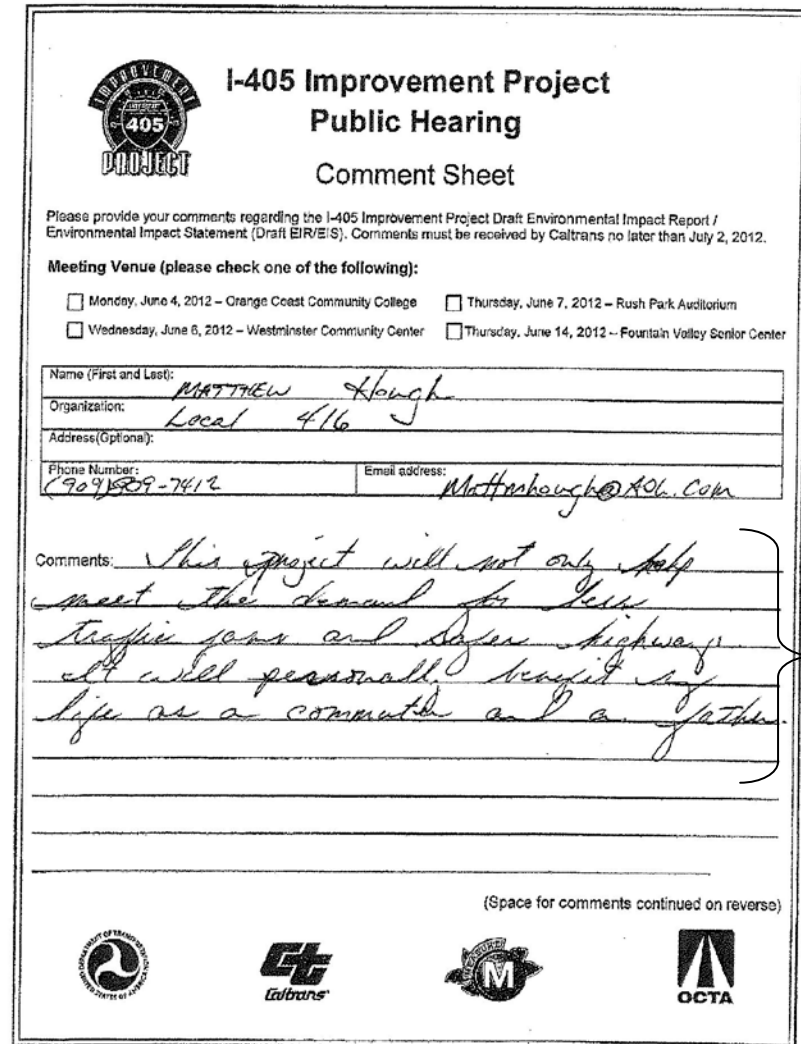 IMPROVEMENT
405
PROJECT
I-405 Improvement Project
Public Hearing
Comment Sheet
Please provide your comments regarding the I-405 Improvement Project Draft Environmental Impact Report /
Environmental Impact Statement (Draft EIR/EIS). Comments must be received by Caltrans no later than July 2, 2012.
Meeting Venue (please check one of the following):
Monday, June 4, 2012 – Orange Coast Community College
Thursday, June 7, 2012 – Rush Park Auditorium
Wednesday, June 6, 2012 – Westminster Community Center
Thursday, June 14, 2012 – Fountain Valley Senior Center
Name (First and Last): MATTHEW Hough
Organization: Local 416
Address(Optional):
Phone Number: (909) 909-7412
Email address: Mattmhough@AOL.com
Comments: This project will not only help
meet the demand for less
traffic jams and safer highways.
It will personally benefit my
life as a commuter and a father.
(Space for comments continued on reverse)
DEPARTMENT OF TRANSPORTATION
UNITED STATES OF AMERICA
Caltrans
MEASURE
M
OCTA